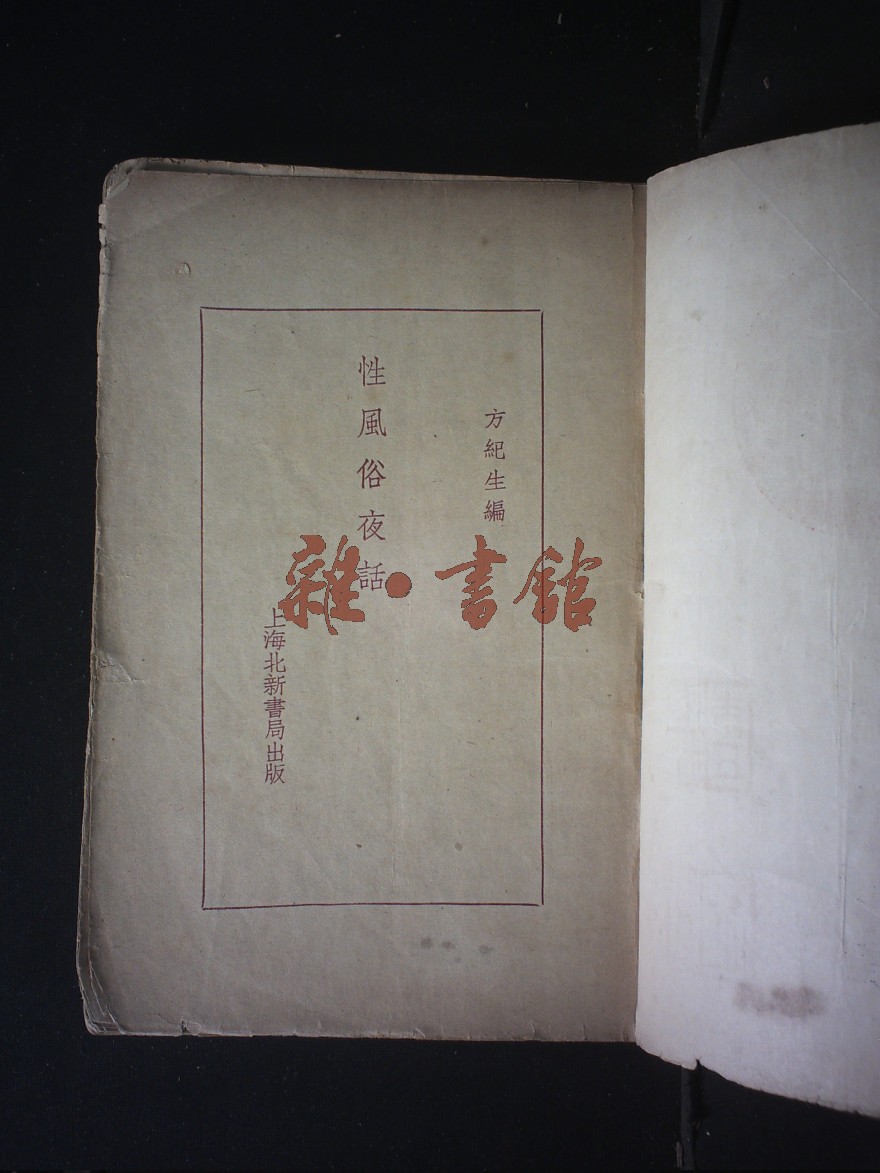 方紀生編
性風俗夜話
上海北新書局出版
雜·書館